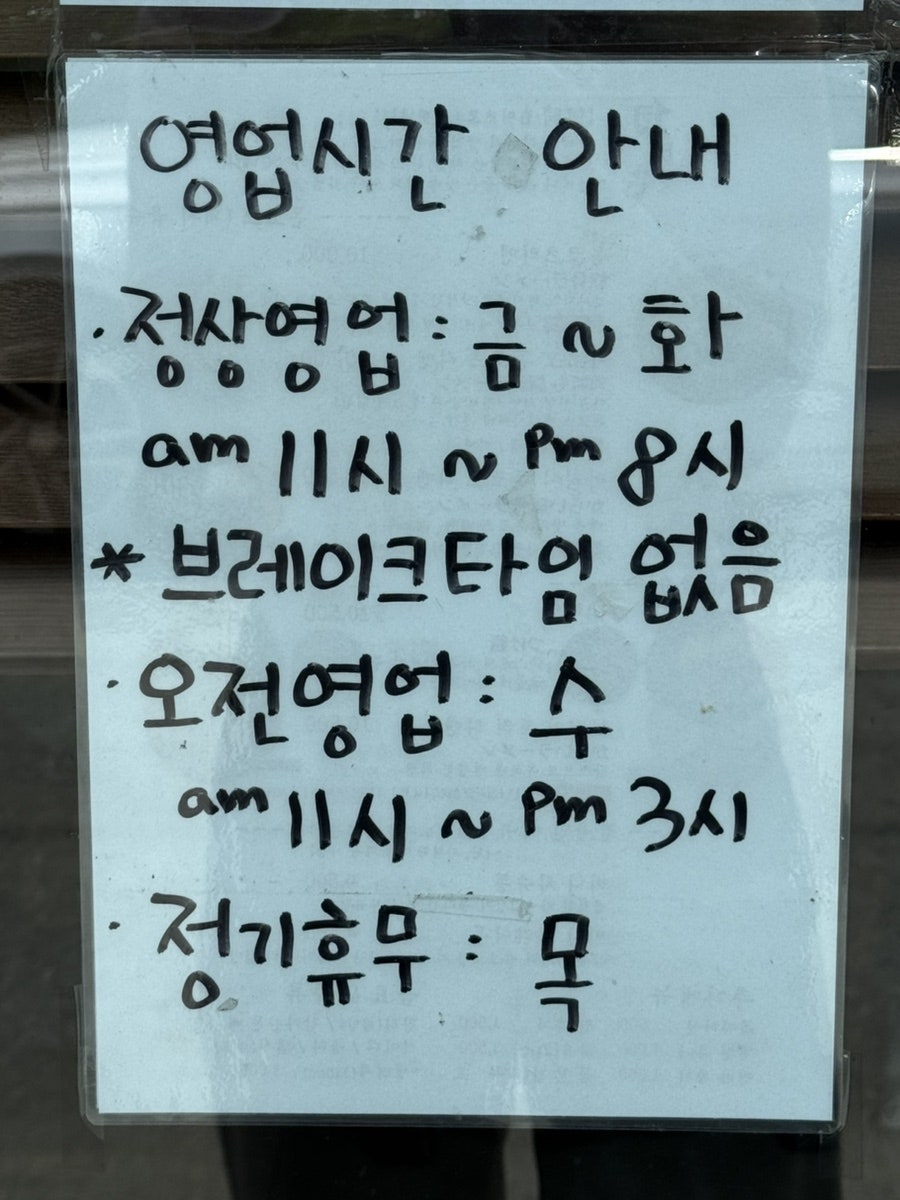 영업시간 안내
· 정상영업 : 금 ~ 화
am 11시 ~ pm 8시
* 브레이크타임 없음
· 오전영업 : 수
am 11시 ~ pm 3시
· 정기휴무 : 목